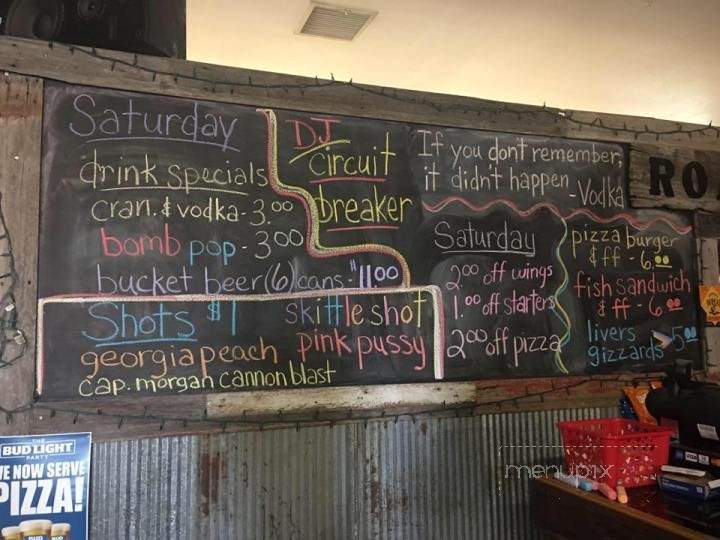 Saturday
drink specials
cran. & vodka - 3.00
bomb pop - 3.00
bucket beer (6) cans - $11.00
DJ
Circuit
breaker
Shots $1
skittle shot
georgia peach
pink pussy
cap. morgan cannon blast
If you dont remember,
it didn't happen
-Vodka
Saturday
2.00 off wings
1.00 off starters
2.00 off pizza
pizza burger
& ff - 6.00
fish sandwich
& ff - 6.00
livers
gizzards 5.00
RO
THE
BUD LIGHT
PARTY
WE NOW SERVE
PIZZA!
menupix
VISA